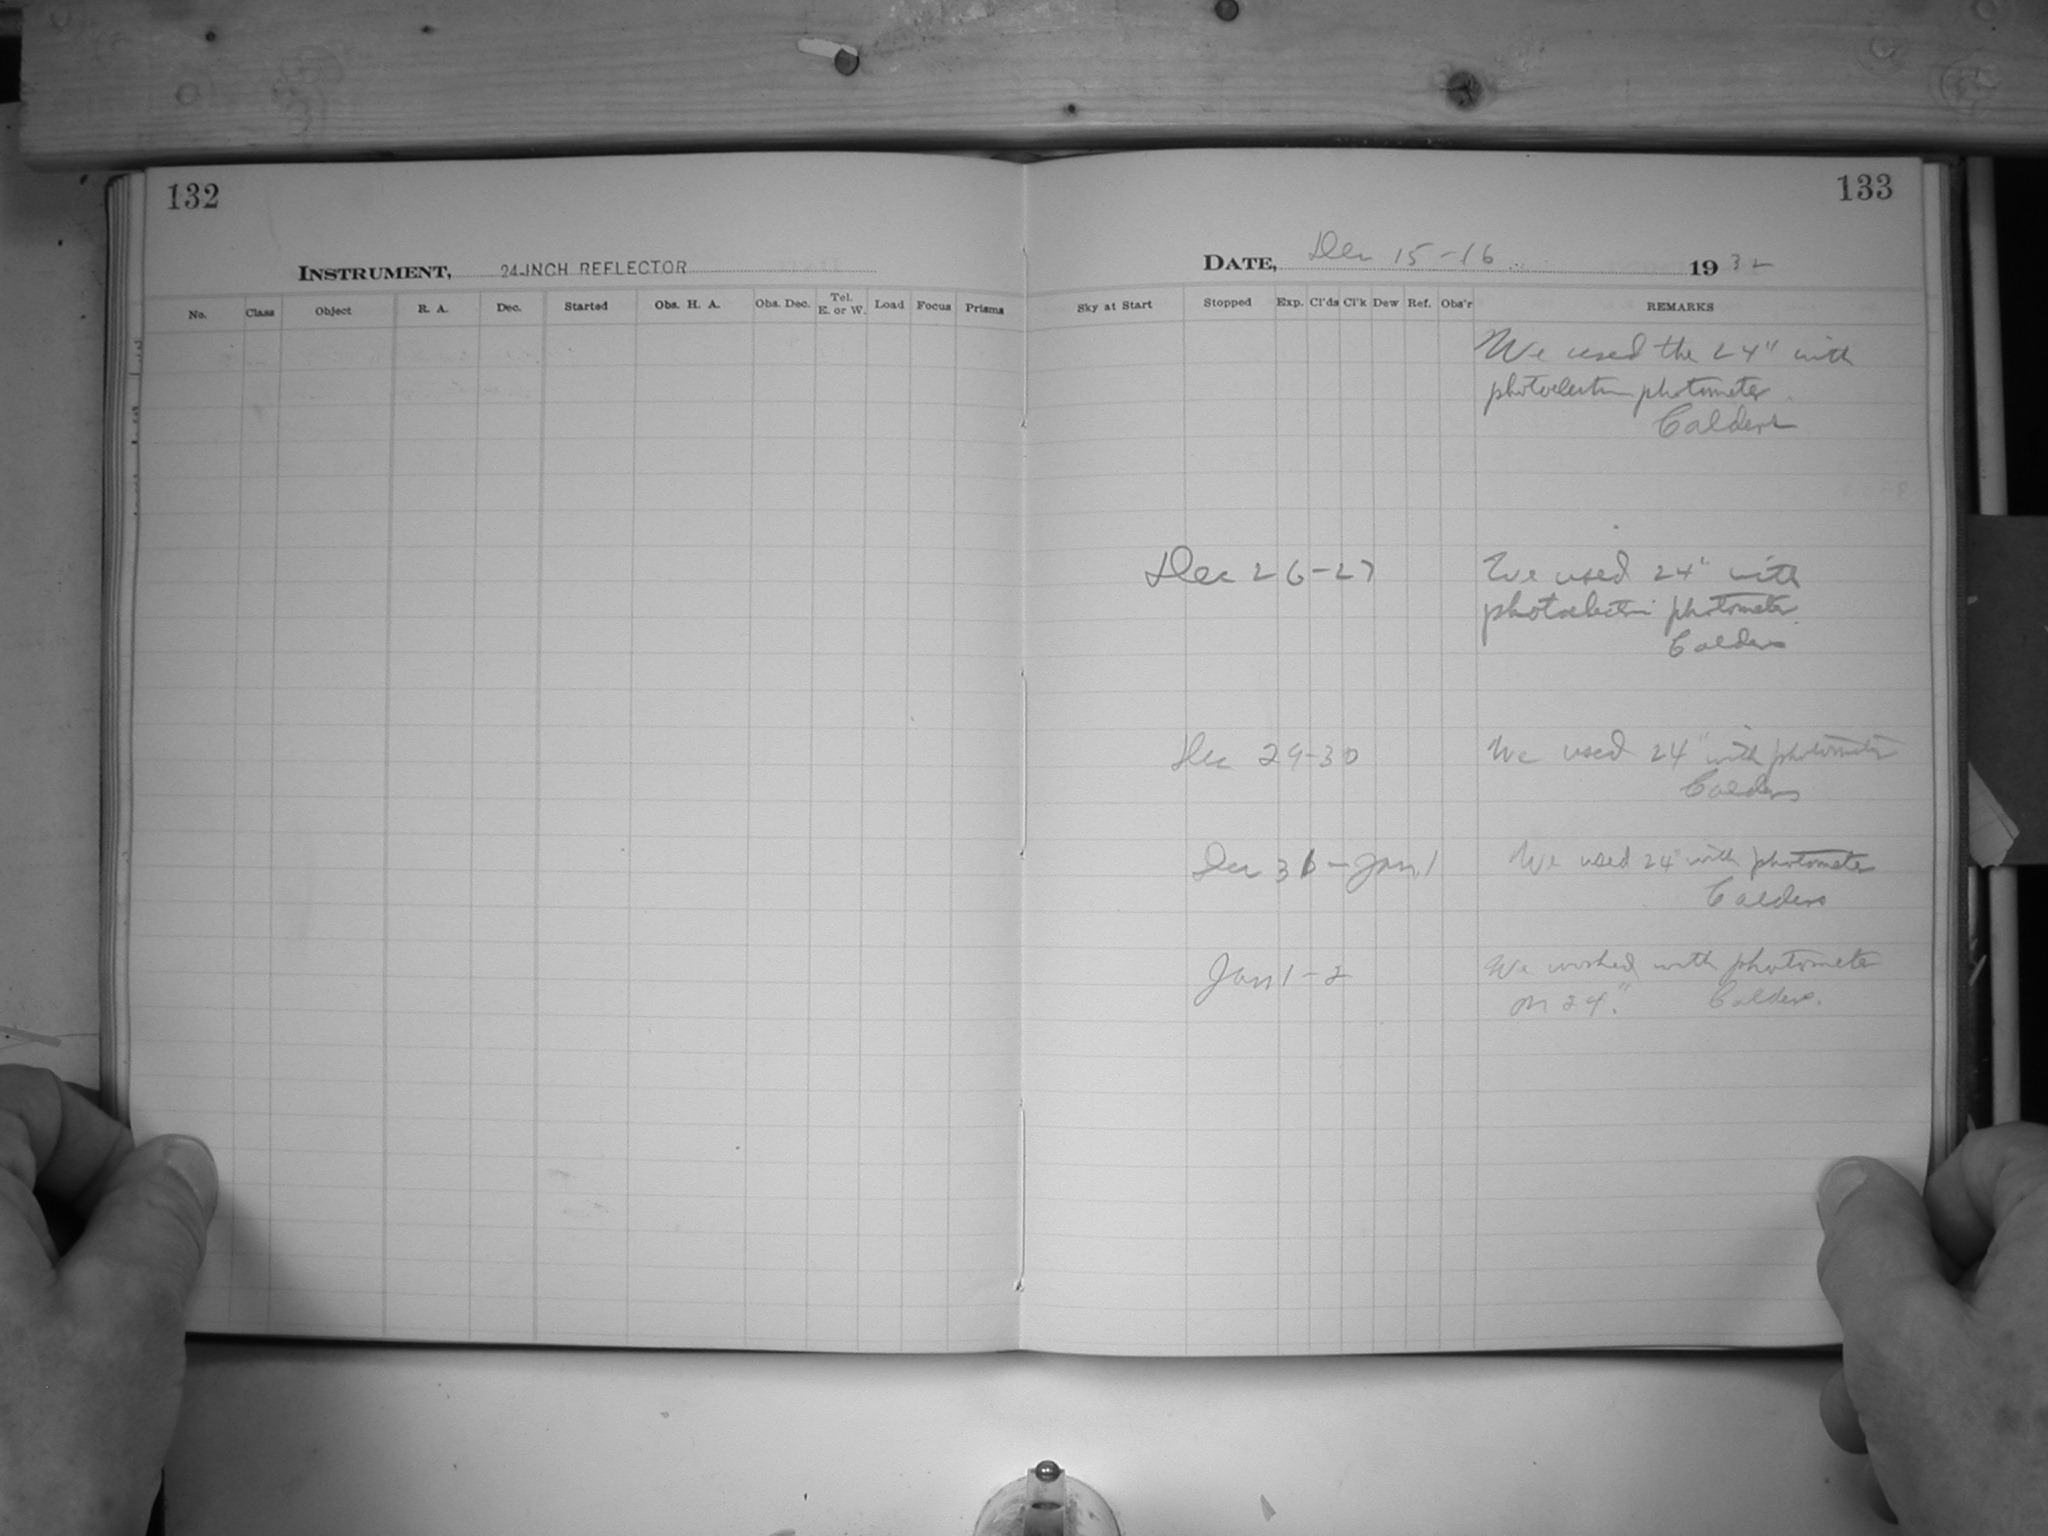 132
INSTRUMENT, 24-INCH REFLECTOR
No. Class Object R. A. Dec. Started Obs. H. A. Obs. Dec. Tel. E. or W. Load Focus Prisms
133
DATE, Dec 15-16 1932
Sky at Start Stopped Exp. Cl'ds Cl'k Dew Ref. Obs'r REMARKS
We used the 24" with
photoelectric photometer
Calder
Dec 26-27 We used 24" with
photoelectric photometer
Calder
Dec 29-30 We used 24" with photometer
Calder
Dec 31-Jan 1 We used 24" with photometer
Calder
Jan 1-2 We worked with photometer
on 24". Calder.